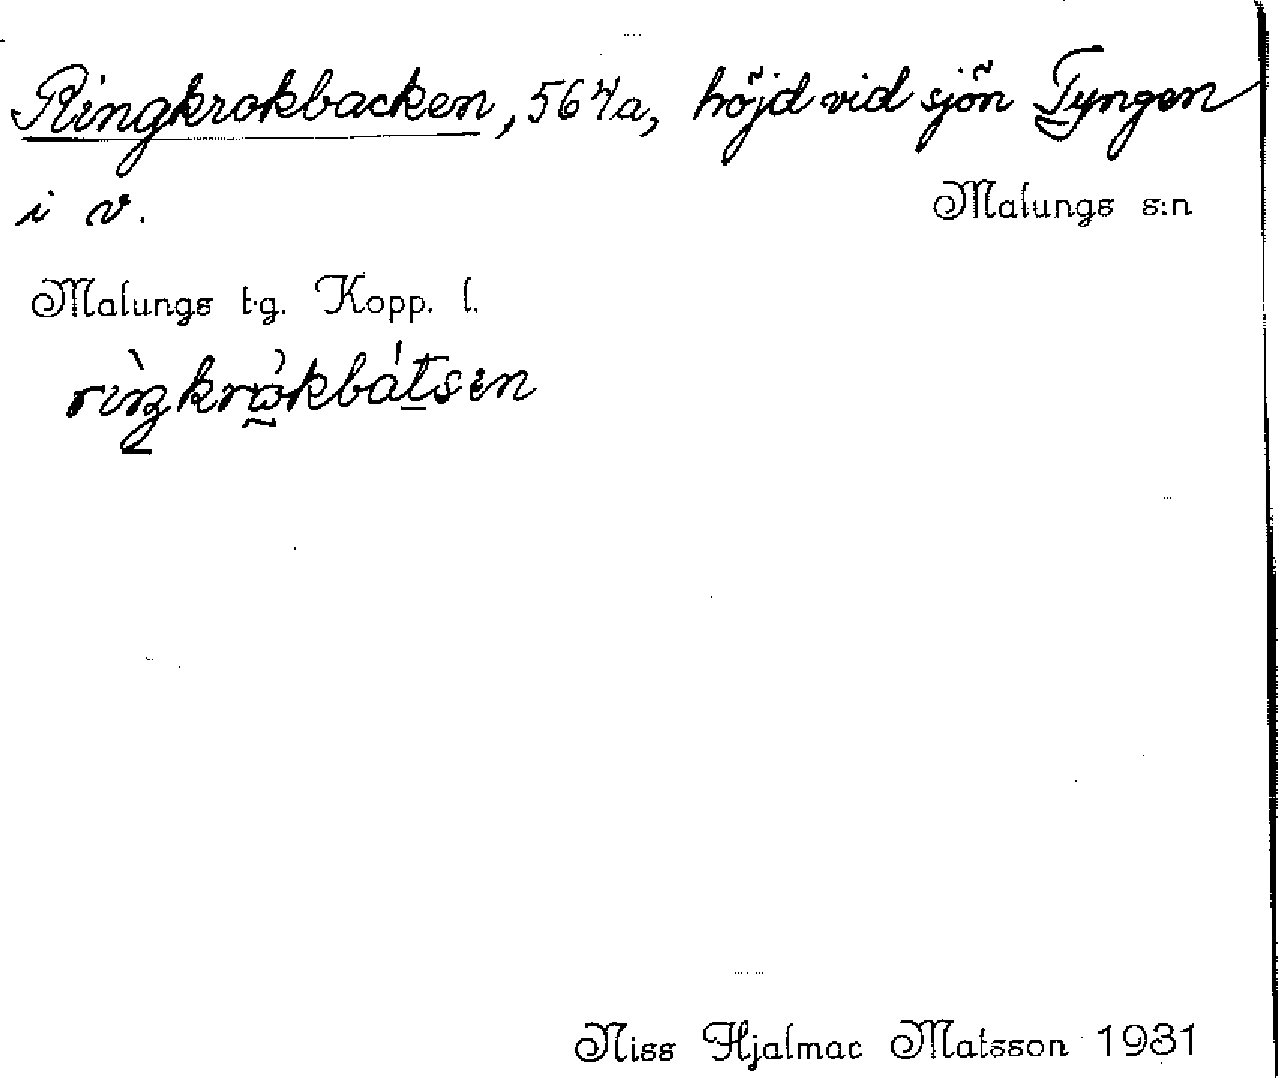 Ringkrokbacken, 564/a, höjd vid sjön Tyngen
i v.
Malungs s:n
Malungs t.g. Kopp. l.
Niss Hjalmar Matsson 1931